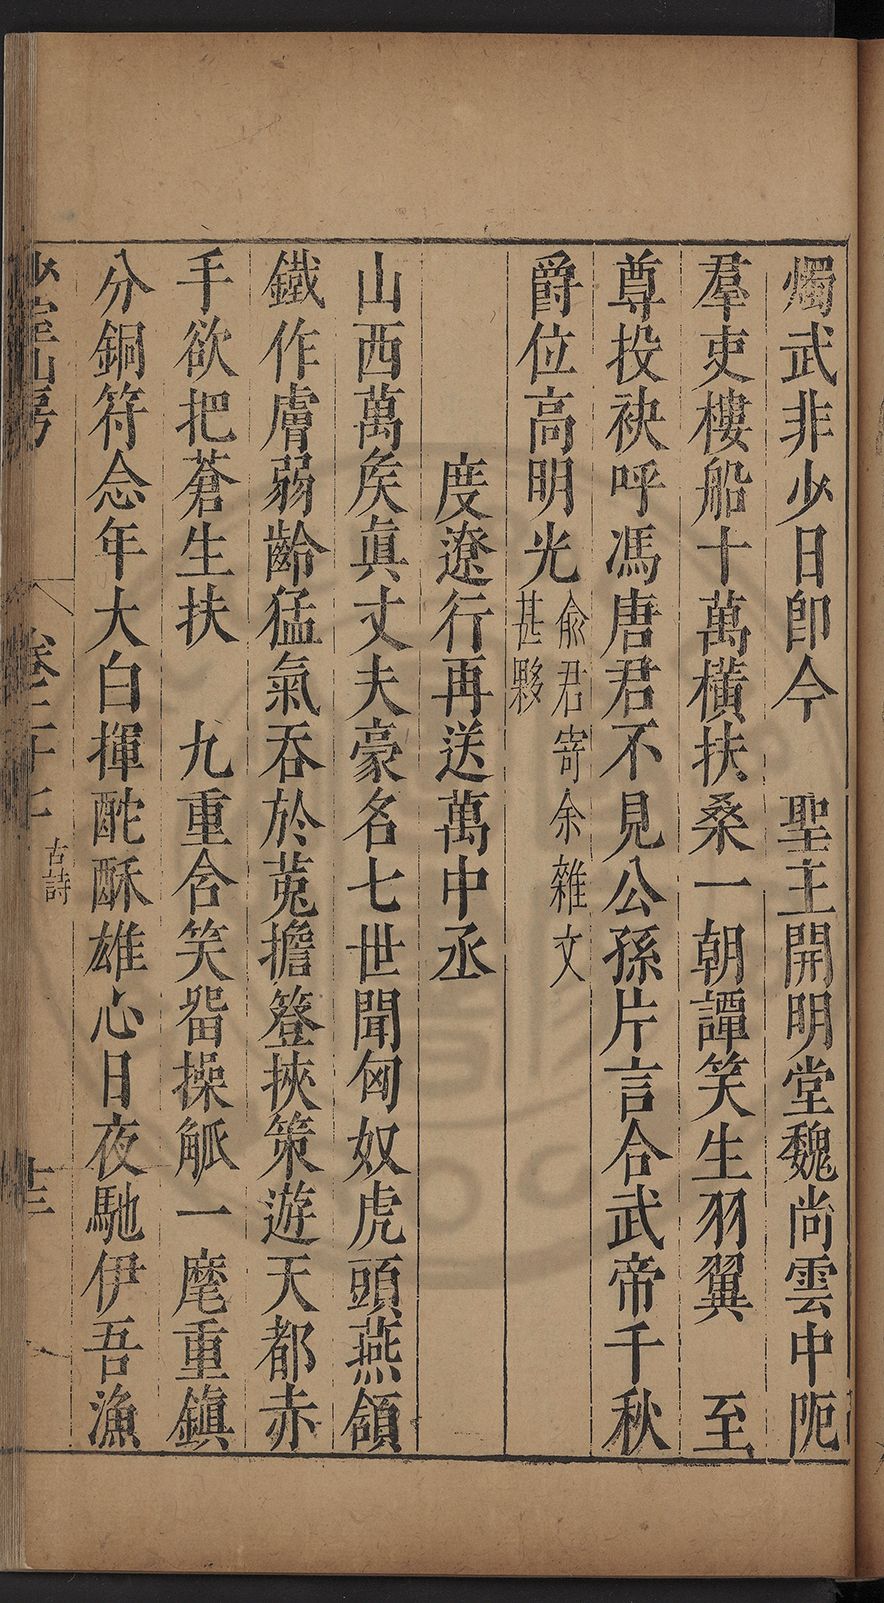 燭武非少日卽今　聖主開明堂魏尚雲中阨
羣吏樓船十萬橫扶桑一朝譚笑生羽翼　至
尊投袂呼馮唐君不見公孫片言合武帝千秋
爵位高明光兪君寄余雜文
甚夥
度遼行再送萬中丞
山西萬矦眞丈夫豪名七世聞匈奴虎頭燕頷
鐵作膚弱齡猛氣吞於菟擔簦挾策遊天都赤
手欲把蒼生扶　九重含笑畱操觚一麾重鎭
分銅符念年大白揮酡酥雄心日夜馳伊吾漁
少室山房
卷二十
古詩